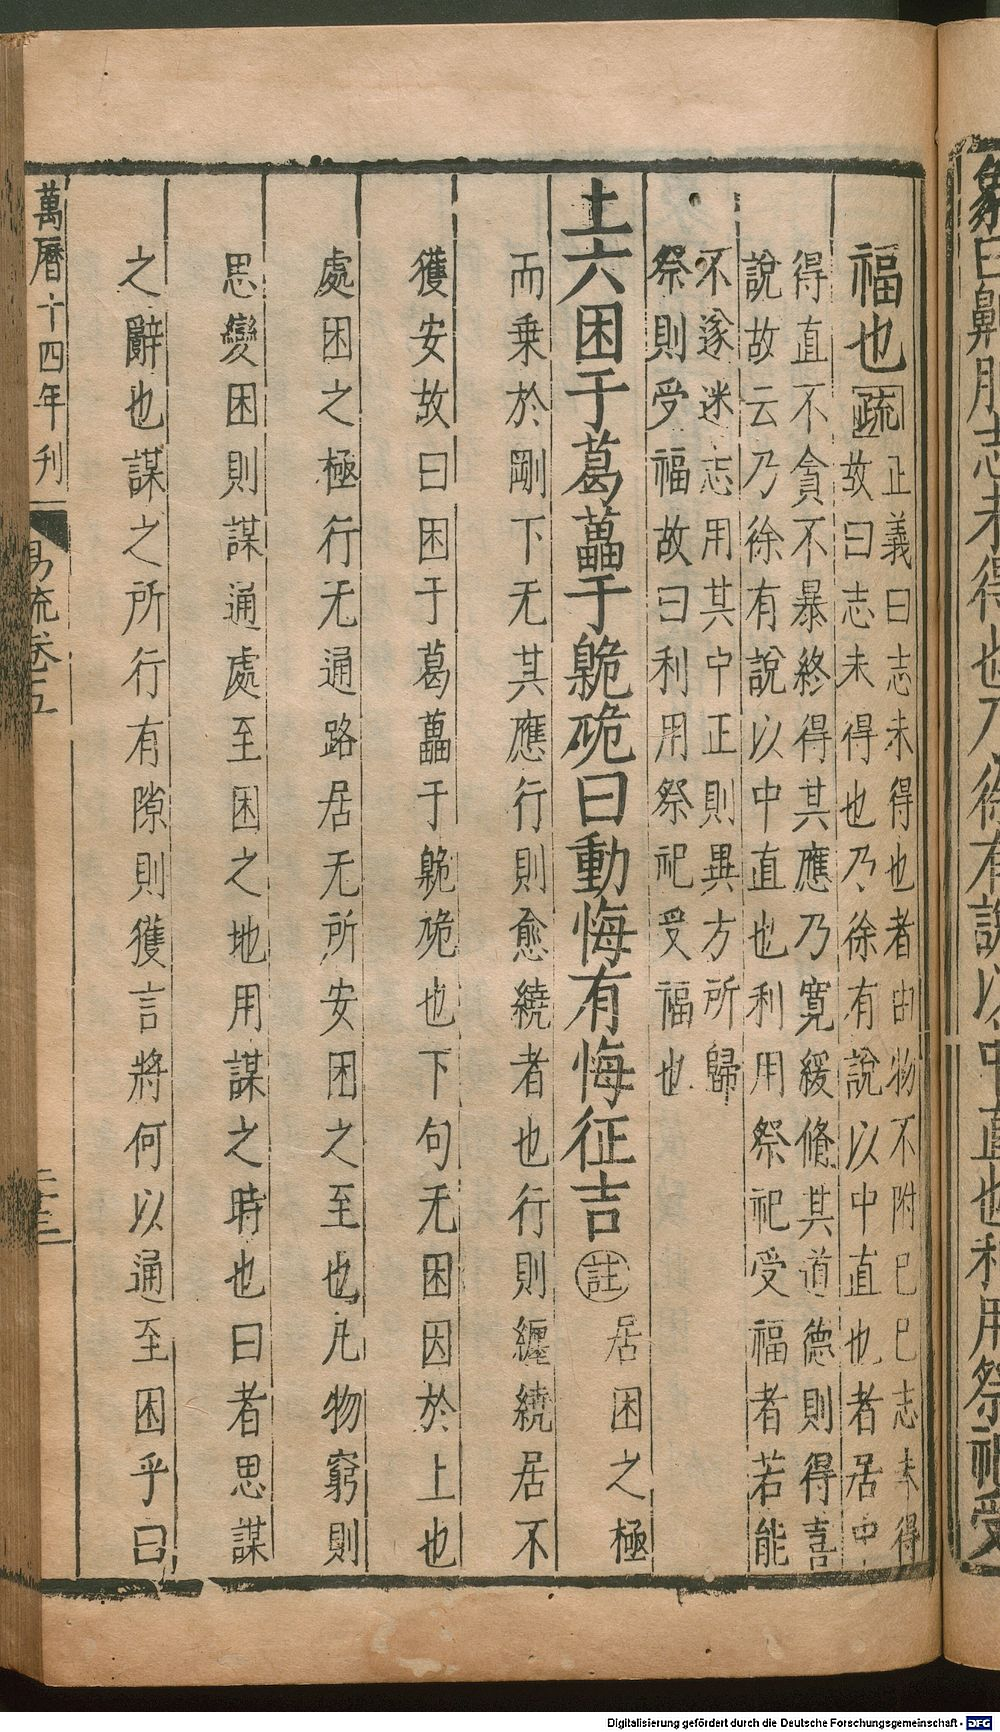 象曰劓刖志未得也乃徐有說以中直也利用祭祀受
福也疏
正義曰志未得也者由物不附已巳志未得
故曰志未得也乃徐有說以中直也者居中
得直不貪不暴終得其應乃寬緩脩其道德則得喜
說故云乃徐有說以中直也利用祭祀受福者若能
不遂迷志用其中正則異方所歸
祭則受福故曰利用祭祀受福也
上六困于葛藟于臲硊曰動悔有悔征吉註居困之極
而乗於剛下无其應行則愈繞者也行則纏繞居不
獲安故曰困于葛藟于臲硊也下句无困因於上也
處困之極行无通路居无所安困之至也凡物窮則
思變困則謀通處至困之地用謀之時也曰者思謀
之辭也謀之所行有隙則獲言將何以通至困乎曰
萬曆十四年刊 易疏卷五
Digitalisierung gefördert durch die Deutsche Forschungsgemeinschaft - DFG